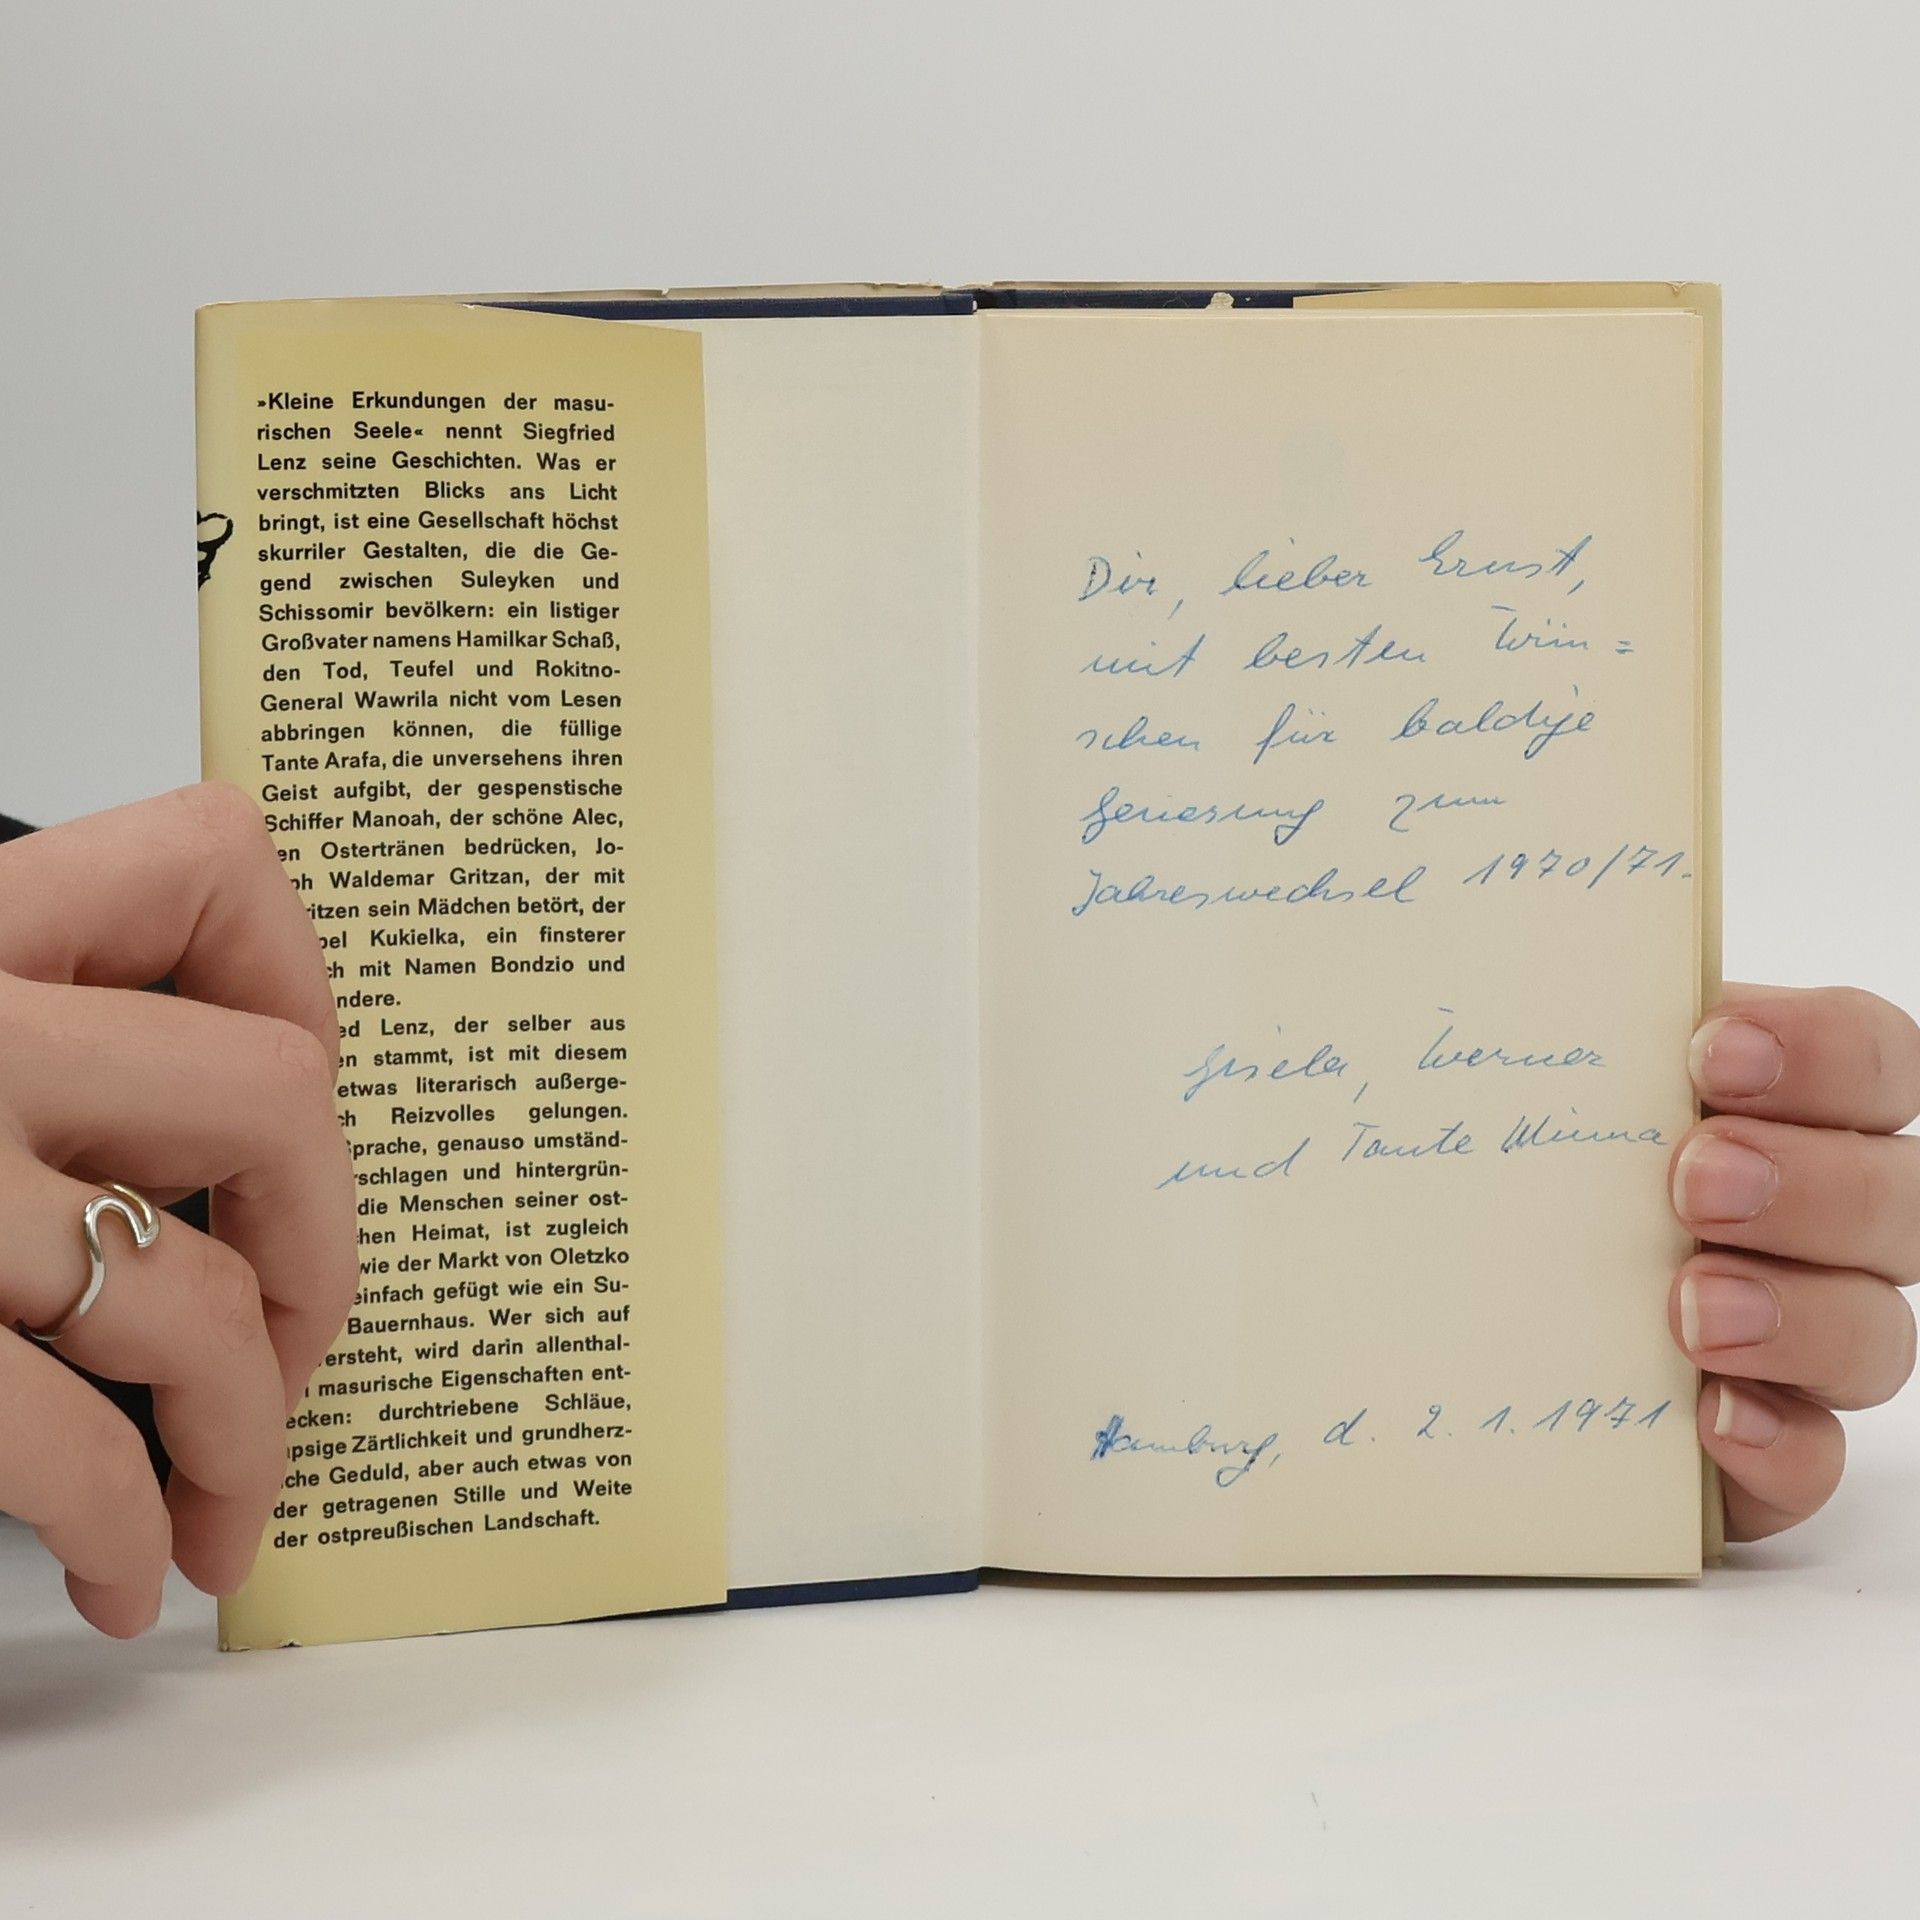 »Kleine Erkundungen der masu-
rischen Seele« nennt Siegfried
Lenz seine Geschichten. Was er
verschmitzten Blicks ans Licht
bringt, ist eine Gesellschaft höchst
skurriler Gestalten, die die Ge-
gend zwischen Suleyken und
Schissomir bevölkern: ein listiger
Großvater namens Hamilkar Schaß,
den Tod, Teufel und Rokitno-
General Wawrila nicht vom Lesen
abbringen können, die füllige
Tante Arafa, die unversehens ihren
Geist aufgibt, der gespenstische
Schiffer Manoah, der schöne Alec,
Ostertränen bedrücken, Jo-
Waldemar Gritzan, der mit
sein Mädchen betört, der
Kukielka, ein finsterer
mit Namen Bondzio und
Lenz, der selber aus
stammt, ist mit diesem
etwas literarisch außerge-
Reizvolles gelungen.
Sprache, genauso umständ-
und hintergrün-
die Menschen seiner ost-
Heimat, ist zugleich
wie der Markt von Oletzko
einfach gefügt wie ein Su-
Bauernhaus. Wer sich auf
wird darin allenthal-
masurische Eigenschaften ent-
durchtriebene Schläue,
Zärtlichkeit und grundherz-
Geduld, aber auch etwas von
der getragenen Stille und Weite
der ostpreußischen Landschaft.
Dir, lieber Ernst,
mit besten Wün=
schen für baldige
Genesung zum
Jahreswechsel 1970/71.
Gisela, Werner
und Tante Minna
Hamburg, d. 2. 1. 1971